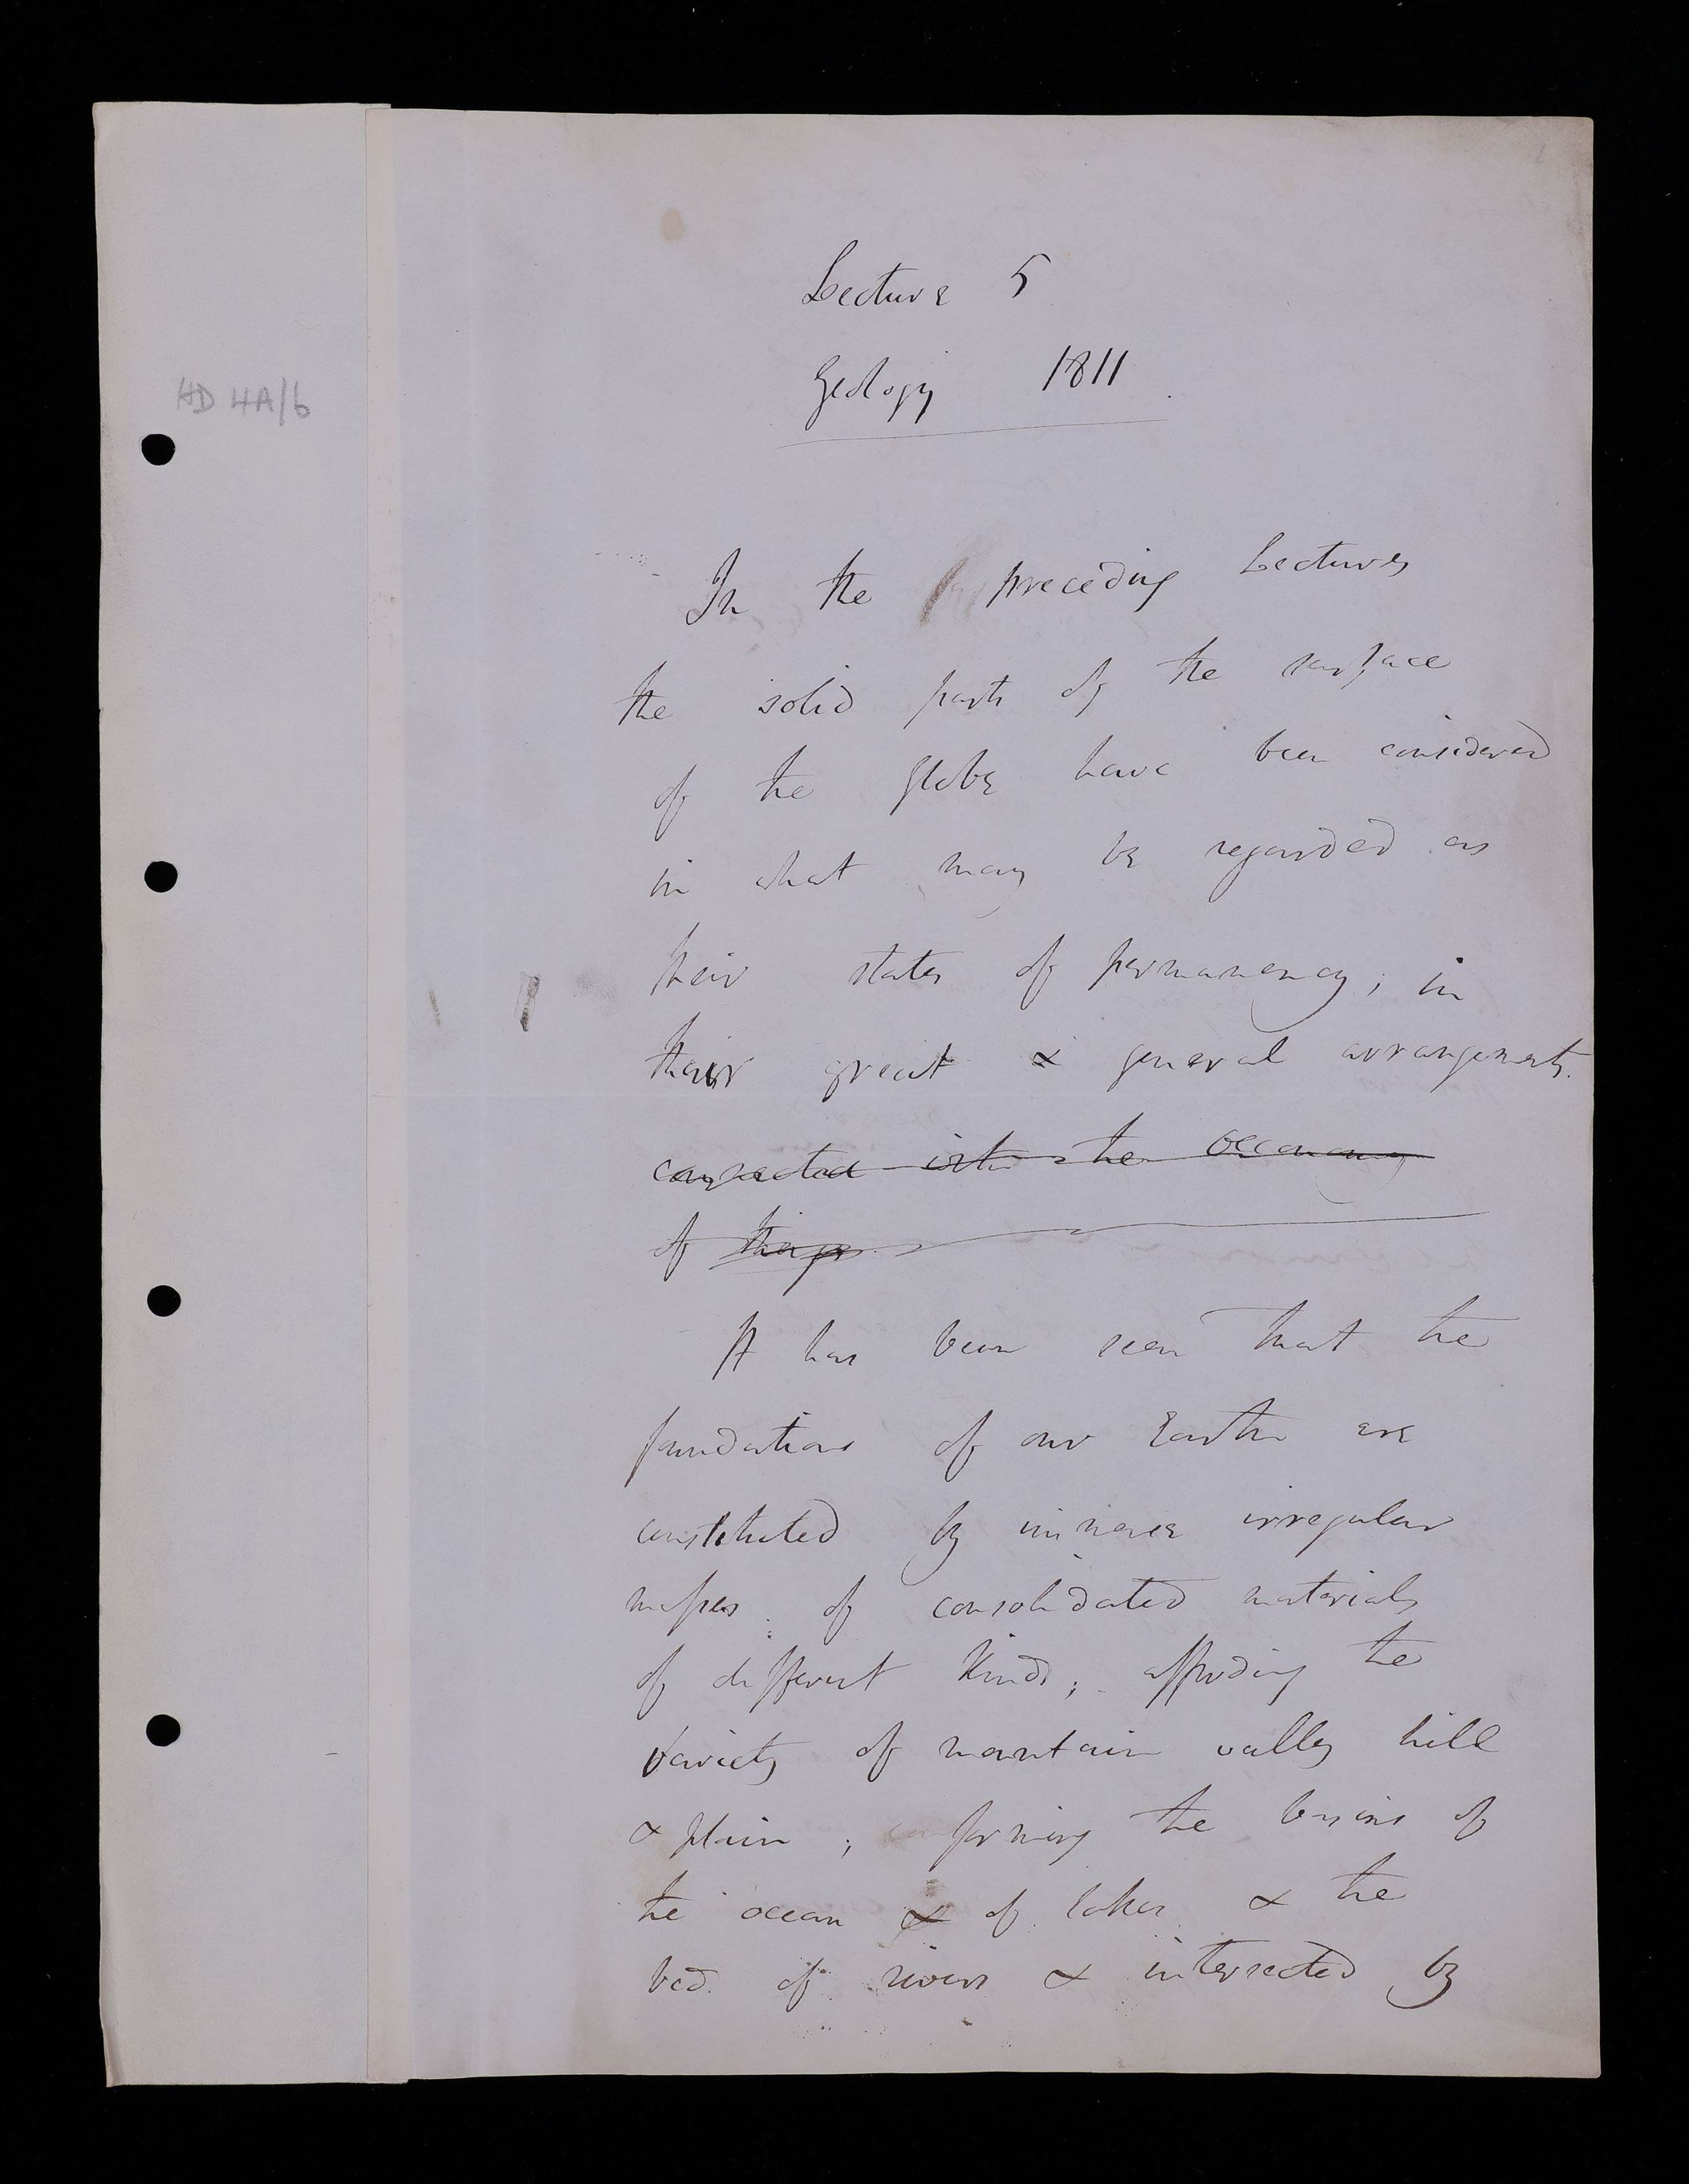 HD 4A/6
Lecture 5
Geology 1811
In the preceding Lectures
the solid parts of the surface
of the Globe have been considered
in what may be regarded as
their states of permanency; in
their great & general arrangements.
connected with the Œconomy
of things
It has been seen that the
foundations of our Earth are
constituted by immense irregular
masses of consolidated materials
of different kinds; affording the
variety of mountain valley hill
& plain; forming the basins of
the ocean & of lakes & the
bed of rivers & intersected by